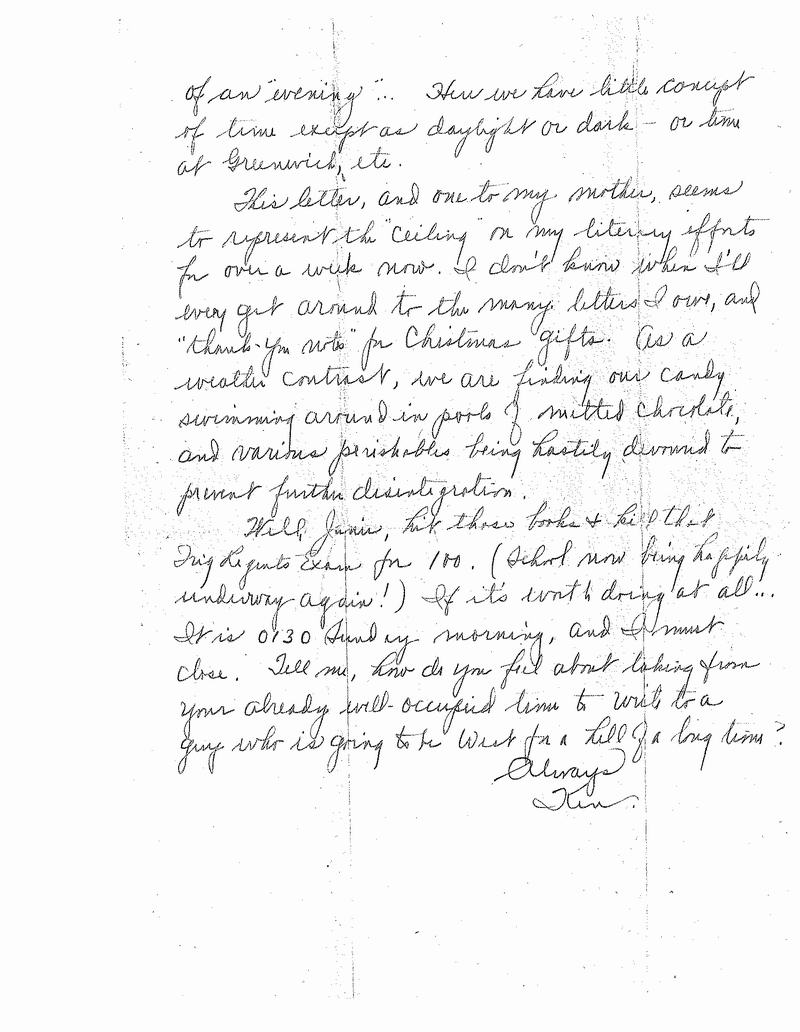 of an "evening"... Here we have little concept
of time except as daylight or dark - or time
at Greenwich, etc.
This letter, and one to my mother, seems
to represent the "ceiling" on my literary efforts
for over a week now. I don't know when I'll
ever get around to the many letters I owe, and
"thank-you notes" for Christmas gifts. As a
weather contrast, we are finding our candy
swimming around in pools of melted chocolate,
and various perishables being hastily devoured to
prevent further disintegration.
Well, Janie, hit those books & kill that
Trig Regents Exam for 100. (School now being happily
underway again!) If it's worth doing at all...
It is 0130 Sunday morning, and I must
close. Tell me, how do you feel about taking from
your already well-occupied time to write to a
guy who is going to be West for a hell of a long time?
Always
Ken.